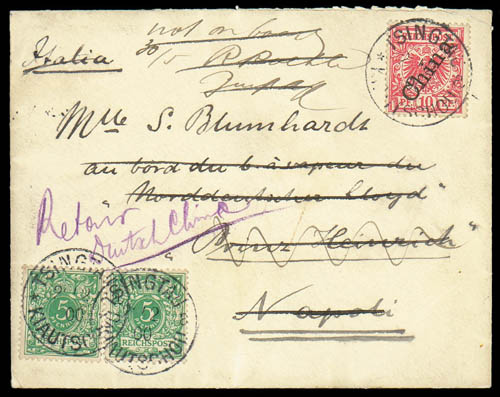 not on board
Italia
30/5
TSINGTAU
China
10
Mlle S. Blumhardt
au bord du b. à vapeur du
"Norddeutscher Lloyd"
Retour
deutsch China
"Prinz Heinrich"
Napoli
TSINGTAU
KIAUTSCHOU
5
TSINGTAU
KIAUTSCHOU
5
REICHSPOST